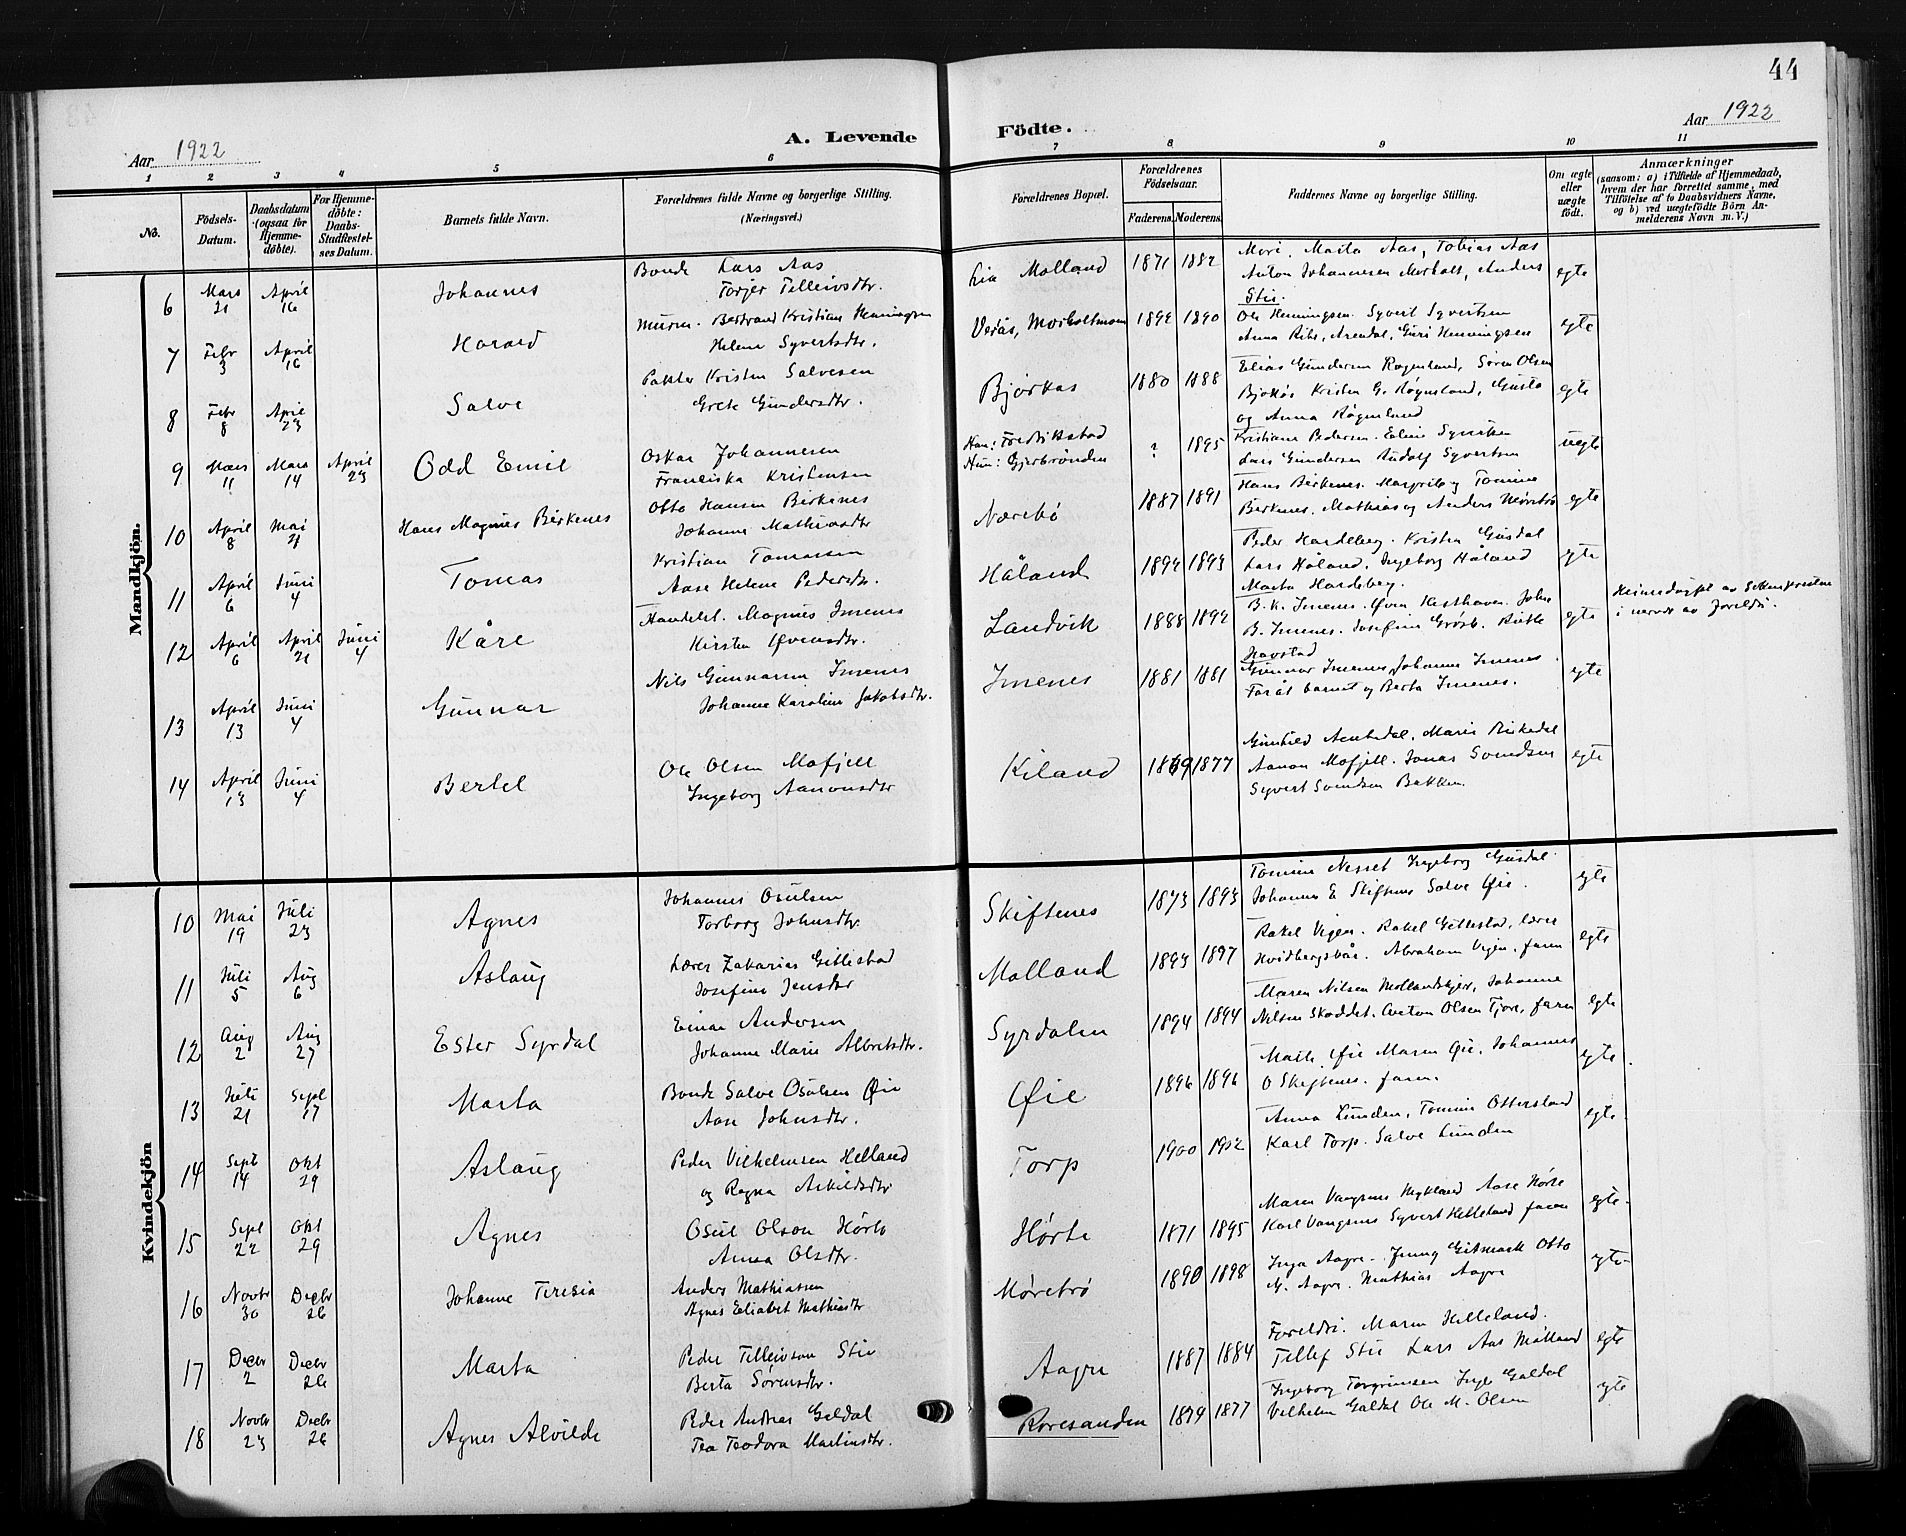 44
Aar 1922
A. Levende Födte.
Aar 1922
1 2 3 4 5 6 7 8 9 10 11
No.
Födsels-Datum.
Daabsdatum (ogsaa for Hjemmedöbte).
For Hjemmedöbte: Daabs-Stadfæstelses Datum.
Barnets fulde Navn.
Forældrenes fulde Navne og borgerlige Stilling.
(Næringsvei.)
Forældrenes Bopæl.
Forældrenes Födselsaar.
Faderens. Moderens.
Faddernes Navne og borgerlige Stilling.
Om ægte eller uægte födt.
Anmærkninger
(saasom: a) i Tilfælde af Hjemmedaab, hvem der har forrettet samme, med Tilföielse af to Daabsvidners Navne, og b) ved uægtefödte Börn Anmelderens Navn m. V.)
Mandkjön.
6 Mars 21 April 16 Johannes Bonde Lars Aas
Torjer Tellevsdtr. Lia Molland 1871 1882 Marta Aas, Tobias Aas
Anton Johannesen Morholt, Anders
Stie. egte
7 Febr 3 April 16 Harald Murm. Bertrand Kristian Henningsen
Helene Syvertsdtr. Verås, Morholtmoen 1892 1890 Ole Henningsen. Syvert Syvertsen
Anna Arendal, Guri Henningsen egte
8 Febr 8 April 23 Salve Kristen Salvesen
Grete Gundersdtr. Bjorkås 1880 1888 Elias Gundersen Røgenlund, Søren Olsen
Kristen G. Røgenlund,
og Anna Røgenlund egte
9 Mars 11 Mars 14 April 23 Odd Emil Oskar Johannesen
Franciska Kristensen Han: Fredrikstad
Hun: Gjerbrønden ? 1895 Kristiane Pedersen.
Lars Gundersen Rudolf Syvertsen uegte
10 April 8 Mai 21 Hans Magnus Birkenes Otto Hansen Birkenes
Johanne Mathiasdtr Nærebø 1887 1891 Hans Birkenes. Tomine
Birkenes. Mathias og Anders egte
11 April 6 Juni 4 Tomas Kristian Tomassen
Aase Helene Pedersdtr. Håland 1894 1893 Peder Hardeberg. Kristen Gusdal
Lars Håland, Ingeborg Håland
Marta Hardeberg. egte
12 April 6 April 21 Juni 4 Kåre Handelst. Magnus Imenes
Kirsten Øvensdtr. Landvik 1888 1892 B. K. Imenes. Øven
B. Imenes. Josefine
Havstad egte
13 April 13 Juni 4 Gunnar Nils Gunnarsen Imenes
Johanne Karoline Jakobsdtr. Imenes 1881 1881 Gunnar Imenes, Johanne Imenes.
barnet og Berta Imenes. egte
14 April 13 Juni 4 Bertel Ole Olsen Mofjell
Ingeborg Aanonsdtr Kiland 1869 1877 Gunhild Marie Birkedal
Aanon Mofjell. Jonas Svendsen
Syvert Svendsen Bakken. egte
Kvindekjön
10 Mai 19 Juli 23 Agnes Johannes Osulsen
Torborg Johnsdtr. Skiftenes 1873 1893 Tomine Nesset Ingeborg Gusdal
Johannes E Skiftenes Salve Øie. egte
11 Juli 5 Aug 6 Aslaug Lærer Zakarias Gittestad
Josefine Jensdtr Molland 1893 1897 Rakel Vigen. Rakel Gittestad, lærer
Hvidbergsbår. Abraham Vigen, faren egte
12 Aug 2 Aug 27 Ester Syrdal Einar Andersen
Johanne Marie Albretsdtr. Syrdalen 1894 1894 Maren Nilsen Johanne
Nilsen Anton Olsen Tjore, faren egte
13 Juli 21 Sept 17 Marta Bonde Salve Osulsen Øie
Aase Johnsdtr. Øie 1896 1896 Øie Maren Øie, Johannes
O Skiftenes. faren. egte
14 Sept 14 Okt 29 Aslaug Peder Vilhelmsen Helland
og Ragna Askildsdtr Torp 1900 1902 Anna Lunden, Tomine Ottersland
Karl Torp. Salve Lunden egte
15 Sept 22 Okt 29 Agnes Osul Olson Hørte
Anna Olsdtr. Hørte 1871 1895 Maren Vangsnes Mykland Aase Hørte
Karl Vangsnes Syvert Helleland faren egte
16 Novbr 30 Decbr 26 Johanne Teresia Anders Mathiassen
Agnes Elisabet Mathiasdtr Mørebrø 1890 1898 Inga Aagre. Jenny Gitmark Otto
M. Aagre. Mathias Aagre egte
17 Decbr 2 Decbr 26 Marta Peder Tellevson Stie
Berta Sørensdtr. Aagre 1887 1884 Foreldri. Maren Helleland.
Tellef Stie Lars Aas Molland egte
18 Novbr 23 Decbr 26 Agnes Alvilde Peder Andreas Galdal
Tea Teodora Martinsdtr. Roresanden 1874 1877 Ingeborg Torgrimsen Inge Galdal
Vilhelm Galdal Ole M. Olsen egte